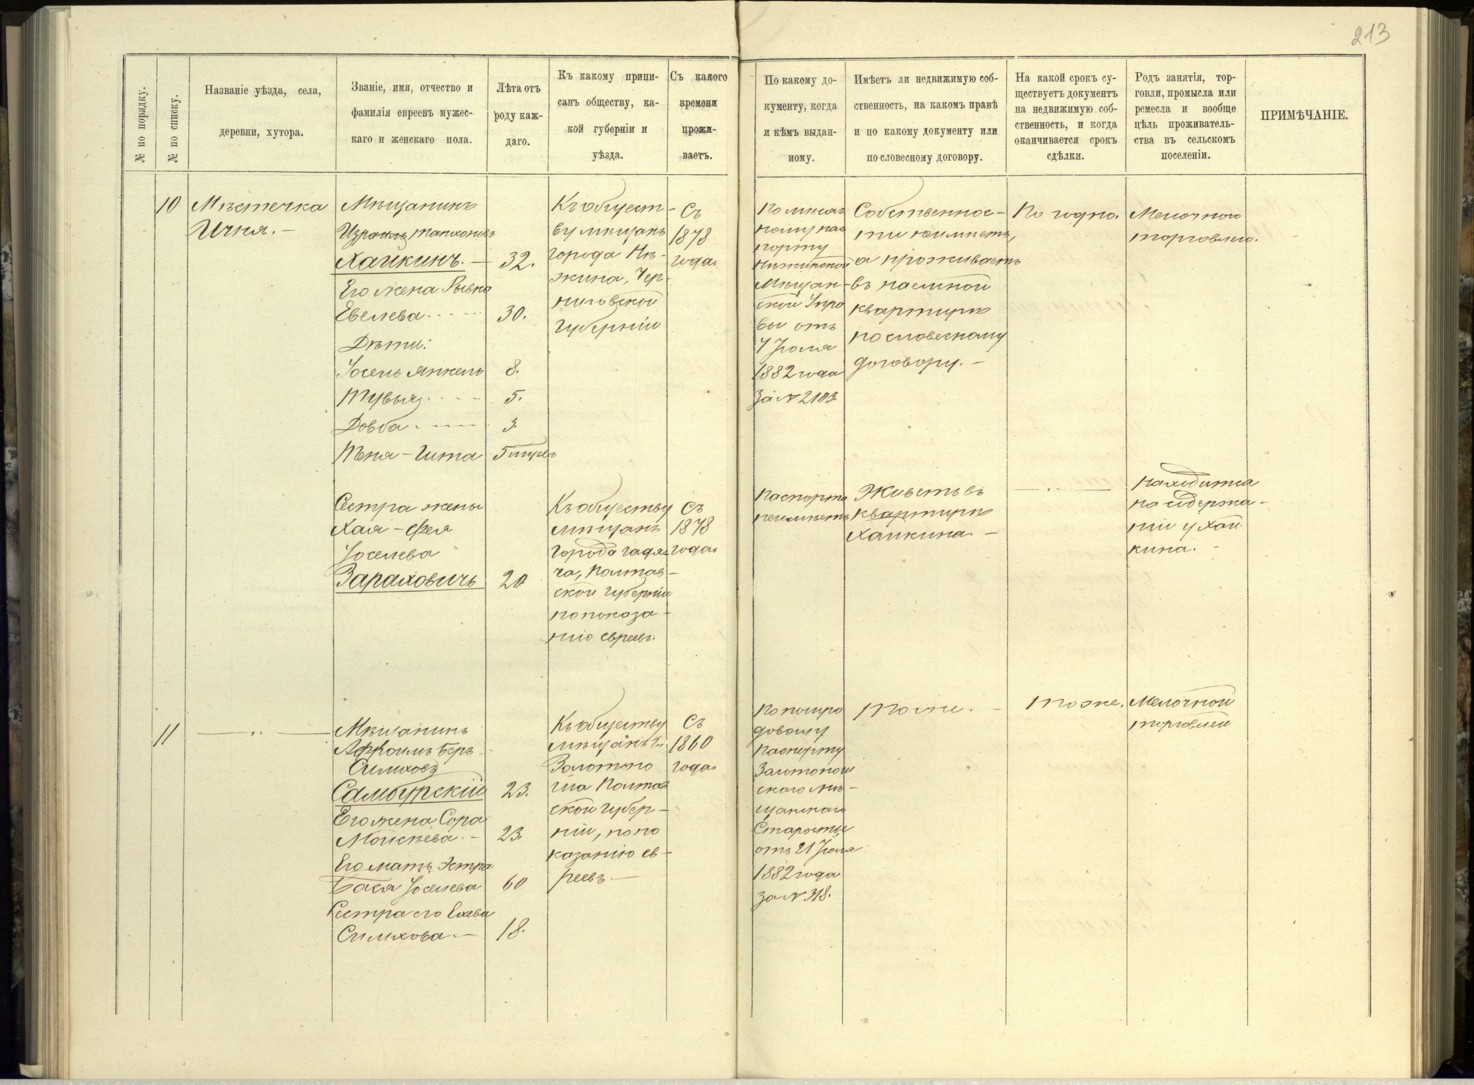 213
№ по порядку.
№ по списку.
Названіе уѣзда, села,
деревни, хутора.
Званіе, имя, отчество и
фамилія евреевъ мужес-
каго и женскаго пола.
Лѣта отъ
роду каж-
даго.
Къ какому припи-
санъ обществу, ка-
кой губерніи и
уѣзда.
Съ какого
времени
прожи-
ваетъ.
По какому до-
кументу, когда
и кѣмъ выдан-
ному.
Имѣетъ ли недвижимую соб-
ственность, на какомъ правѣ
и по какому документу или
по словесному договору.
На какой срокъ су-
ществуетъ документъ
на недвижимую соб-
ственность, и когда
оканчивается срокъ
сдѣлки.
Родъ занятія, тор-
говли, промысла или
ремесла и вообще
цѣль проживатель-
ства въ сельскомъ
поселеніи.
ПРИМѢЧАНІЕ.
10
Мѣстечка
Ичня. —
Мѣщанинъ
Израиль
Хайкинъ. — 32.
Его жена Рывка
Евелева 30.
Дѣти:
Іосель Янкель 8.
Тувья 5.
Довба 3.
Теня – Гита 5
Къ общест-
ву мѣщанъ
города Нѣ-
жина, Чер-
ниговской
губерніи
Съ
1878
года
нному пас
порту
Нѣжинской
Мѣщан-
ской Упра
вы отъ
7 Іюля
1882 года
за № 2183
Собственнос-
ти неимѣетъ,
а проживаетъ
въ наемной
квартирѣ
по словесному
договору. —
По годно.
Мелочною
торговлею.
Сестра жены
Хая – Фея
Іоселева
Зараховичъ 20
Къ обществу
мѣщанъ
города Гадя-
ча, Полтав-
ской губерніи
по показа-
нію евреевъ.
Съ
1878
года
Паспорта
неимѣетъ
Живетъ въ
квартирѣ
Хайкина. —
— " —
Находится
на содержа-
ніи у Хай
кина.
11
— " —
Мѣщанинъ
Беръ
Симховъ
Самбурскій 23.
Его жена Сора
Моисѣева. — 23.
Его мать Эстра
Бася Іоселева 60
Сестра его Хава
Симхова. — 18.
Къ обществу
мѣщанъ г.
Золотоно
ши Полтав
ской губер-
ніи, по по
казанію ев-
реевъ —
Съ
1860
года
По полуго
довому
паспорту
Золотонош
скаго мѣ-
щанскаго
Старосты
отъ 21 Іюля
1882 года
за № 318.
Тоже. —
Тоже.
Мелочной
торговлей